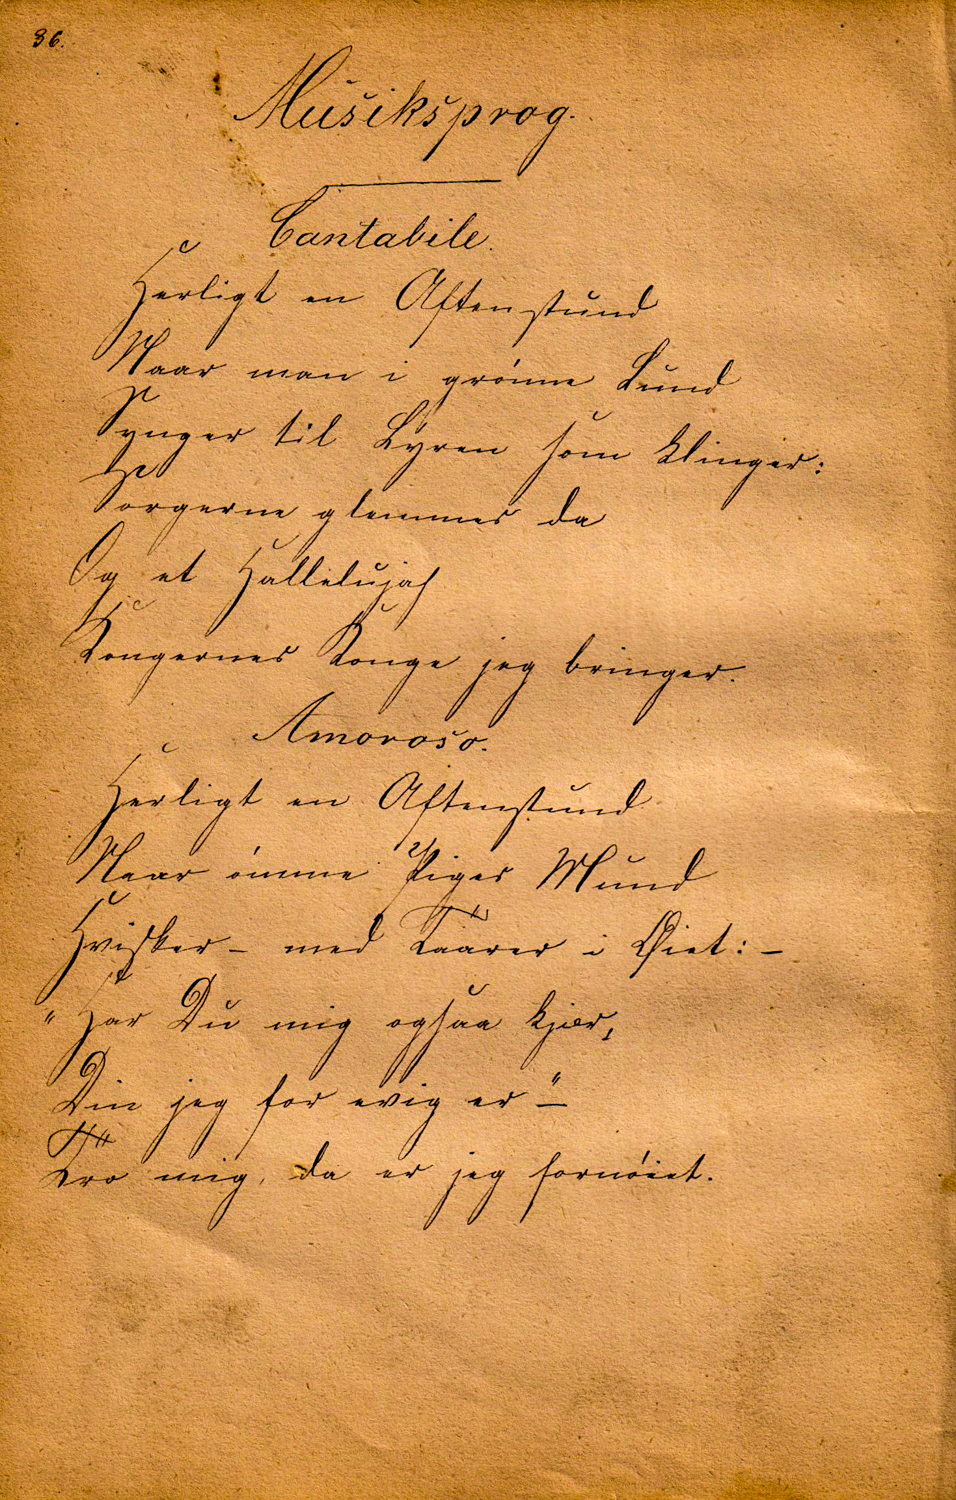 36.
Musiksprog.
Cantabile.
Herligt en Aftenstund
Naar man i grønne Lund
Synger til Lyren som klinger:
Sorgerne glemmes da
Og et Hallelujah
Kongernes Konge jeg bringer.
Amoroso.
Herligt en Aftenstund
Naar ømme Piges Mund
Hvisker – med Taarer i Øiet: –
"Har Du mig ogsaa kjær,
Din jeg for evig er" –
Tro mig, da er jeg fornøiet.